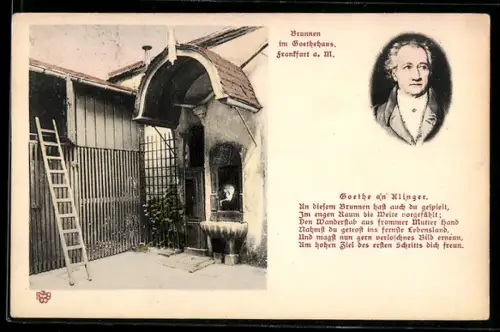 Brunnen
im Goethehaus,
Frankfurt a. M.
Goethe an Klinger.
An diesem Brunnen hast auch du gespielt,
Im engen Raum die Weite vorgefühlt;
Den Wanderstab aus frommer Mutter Hand
Nahmst du getrost ins fernste Lebensland,
Und magst nun gern verloschnes Bild erneun,
Am hohen Ziel des ersten Schritts dich freun.